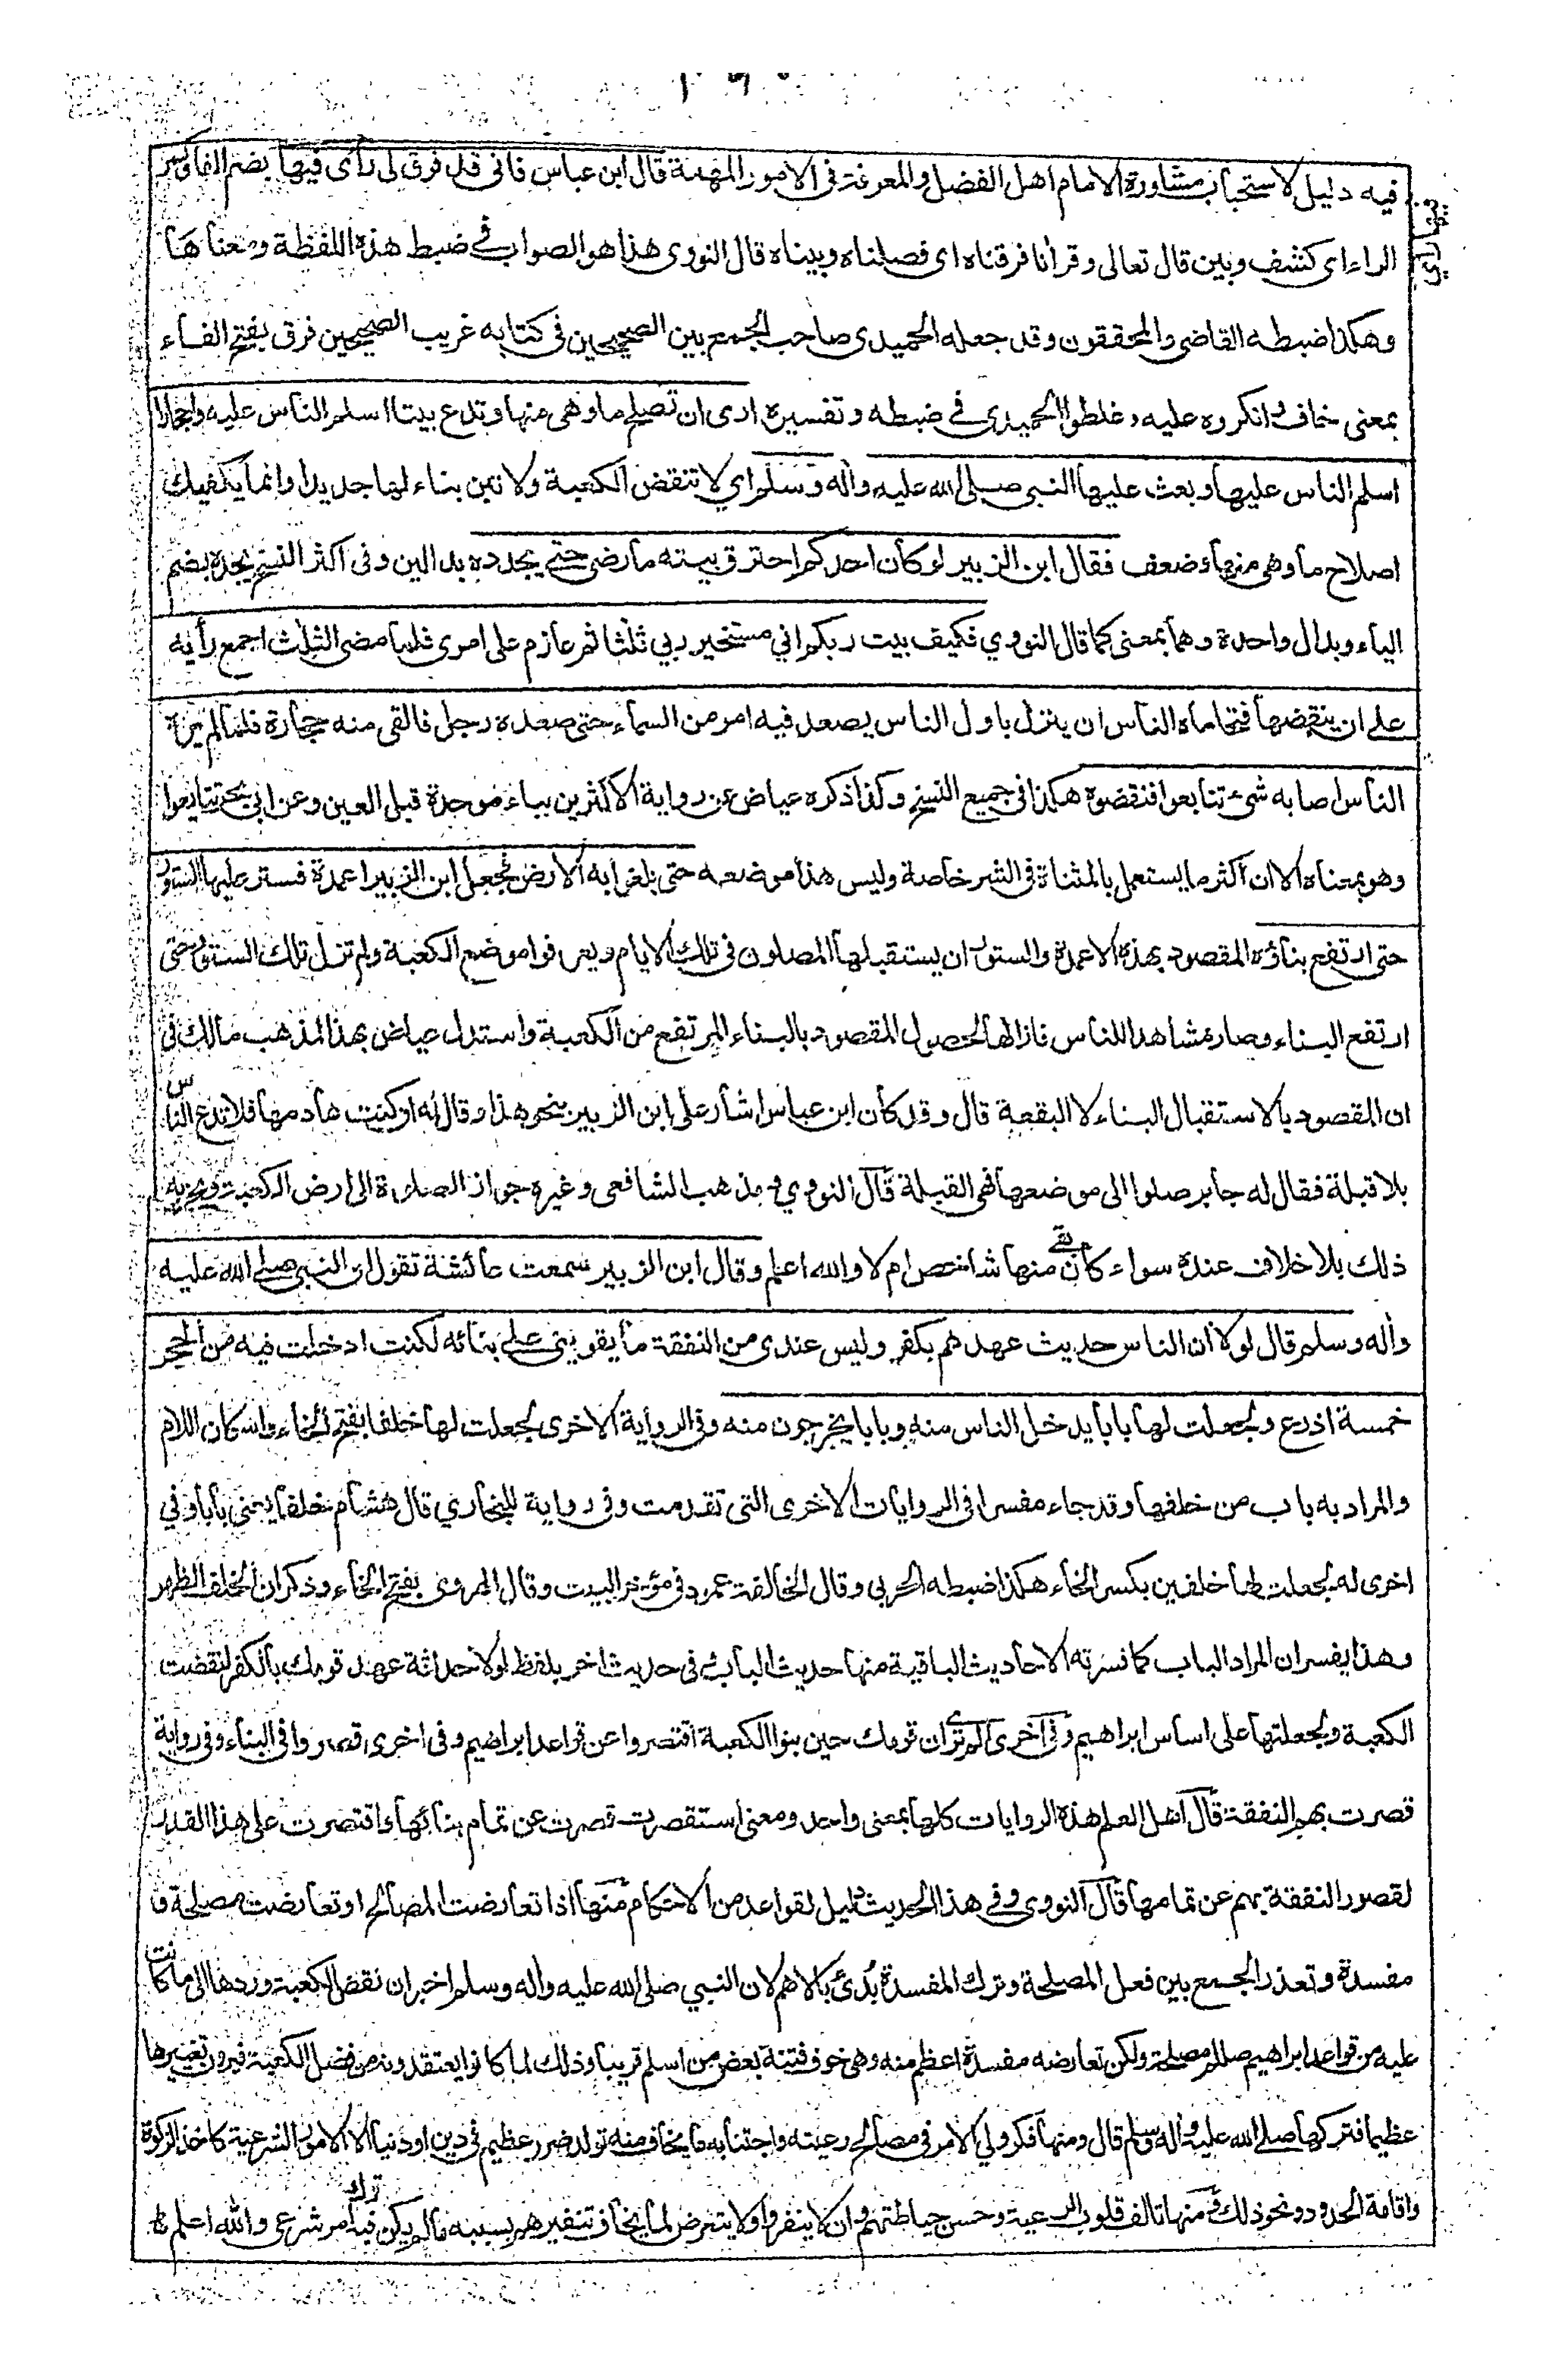 فيه دليل لاستحباب مشاورة الامام اهل الفضل والمعرفة فى الامور المهمة قال ابن عباس فانى قد فرق لى رأى فيها بضم الفا وكسر
الراء اى كشف وبين قال تعالى وقرأنا فرقناه اى فصلناه وبيناه قال النووى هذا هو الصواب فى ضبط هذه اللفظة ومعناها
وهكذا ضبطه القاضى والمحققون وقد جعله الحميدى صاحب الجمع بين الصحيحين فى كتابه غريب الصحيحين فرق بفتح الفاء
بمعنى خاف وانكروه عليه وغلطوا الحميدى فى ضبطه وتفسيره ارى ان تصلح ما وهى منها وتدع بيتا اسلم الناس عليه واحجارا
اسلم الناس عليها وبعث عليها النبى صلى الله عليه واله وسلم اي لا تنقض الكعبة ولا تبن بناء لها جديدا وانما يكفيك
اصلاح ما وهى منها وضعف فقال ابن الزبير لو كان احدكم احترق بيته ما رضى حتى يجدده بدالين وفى اكثر النسخ يجده بضم
الياء وبدال واحدة وهما بمعنى كما قال النووي فكيف بيت ربكم اني مستخير ربي ثلثا ثم عازم على امرى فلما مضى الثلث اجمع رأيه
على ان ينقضها فتحاماه الناس ان ينزل باول الناس يصعد فيه امر من السماء حتى صعده رجل فالقى منه حجارة فلما لم يره
الناس اصابه شىء تتابعوا فنقضوه هكذا فى جميع النسخ وكذا ذكره عياض عن رواية الاكثرين بباء موحدة قبل العين وعن ابى بحر تتايعوا
وهو بمعناه الا ان اكثر ما يستعمل بالمثناة فى الشر خاصة وليس هذا موضعه حتى بلغوا به الارض فجعل ابن الزبير اعمدة فستر عليها الستور
حتى ارتفع بناؤه المقصود بهذه الاعمدة والستور ان يستقبلها المصلون فى تلك الايام ويعرفوا موضع الكعبة ولم تزل تلك الستور حتى
ارتفع البناء وصار مشاهدا للناس فازالها لحصول المقصود بالبناء المرتفع من الكعبة واستدل عياض بهذا لمذهب مالك فى
ان المقصود بالاستقبال البناء لا البقعة قال وقد كان ابن عباس اشار على ابن الزبير بنحو هذا وقال له ان كنت هادمها فلا تدع الناس
بلا قبلة فقال له جابر صلوا الى موضعها فهى القبلة قال النووي ومذهب الشافعى وغيره جواز الصلوة الى ارض الكعبة ويجزيه
ذلك بلا خلاف عنده سواء كان بقى منها شاخص ام لا والله اعلم وقال ابن الزبير سمعت عائشة تقول ان النبى صلى الله عليه
واله وسلم قال لولا ان الناس حديث عهدهم بكفر وليس عندى من النفقة ما يقوينى على بنائه لكنت ادخلت فيه من الحجر
خمسة اذرع ولجعلت لها بابا يدخل الناس منه وبابا يخرجون منه وفى الرواية الاخرى لجعلت لها خلفا بفتح الخاء واسكان اللام
والمراد به باب من خلفها وقد جاء مفسرا فى الروايات الاخرى التى تقدمت وفى رواية للبخاري قال هشام خلفا يعنى بابا وفي
اخرى له لجعلت لها خلفين بكسر الخاء هكذا ضبطه الحربى وقال الخالفة عمود فى مؤخر البيت وقال الهروى بفتح الخاء وذكر ان الخلف الظهر
وهذا يفسر ان المراد الباب كما فسرته الاحاديث الباقية منها حديث الباب فى حديث اخر بلفظ لولا حداثة عهد قومك بالكفر لنقضت
الكعبة ولجعلتها على اساس ابراهيم وفى اخرى الم ترى ان قومك حين بنوا الكعبة اقتصروا عن قواعد ابراهيم وفى اخرى قصروا فى البناء وفى رواية
قصرت بهم النفقة قال اهل العلم هذه الروايات كلها بمعنى واحد ومعنى استقصرت قصرت عن تمام بنائها واقتصرت على هذا القدر
لقصور النفقة بهم عن تمامها قال النووى وفى هذا الحديث دليل لقواعد من الاحكام منها اذا تعارضت المصالح او تعارضت مصلحة و
مفسدة وتعذر الجمع بين فعل المصلحة وترك المفسدة بُدئ بالاهم لان النبي صلى الله عليه واله وسلم اخبر ان نقض الكعبة وردها الى ما كانت
عليه من قواعد ابراهيم صللم مصلحة ولكن تعارضه مفسدة اعظم منه وهى خوف فتنة بعض من اسلم قريبا وذلك لما كانوا يعتقدونه من فضل الكعبة فيرون تغييرها
عظيما فتركها صلى الله عليه واله وسلم قال ومنها فكر ولي الامر فى مصالح رعيته واجتنابه ما يخاف منه تولد ضرر عظيم فى دين او دنيا الا الامور الشرعية كاخذ الزكوة
واقامة الحدود ونحو ذلك ومنها تالف قلوب الرعية وحسن حياطتهم وان لا ينفروا ولا يتعرض لما يخاف تنفيرهم بسببه ما لم يكن فيه ترك امر شرعى والله اعلم